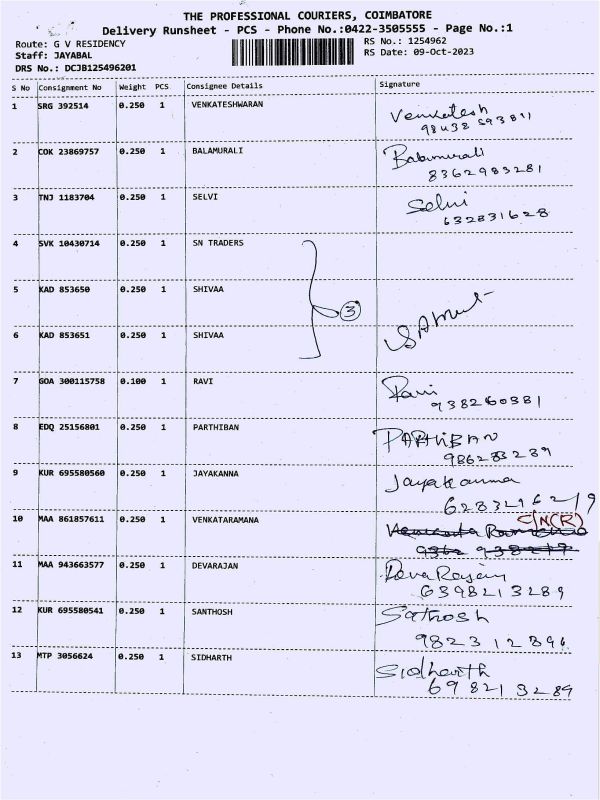 THE PROFESSIONAL COURIERS, COIMBATORE
Delivery Runsheet - PCS - Phone No.:0422-3505555 - Page No.:1
Route: G V RESIDENCY
RS No.: 1254962
Staff: JAYABAL
RS Date: 09-Oct-2023
DRS No.: DCJB125496201
S No Consignment No Weight PCS Consignee Details Signature
1 SRG 392514 0.250 1 VENKATESHWARAN Venkatesh
98438 593811
2 COK 23869757 0.250 1 BALAMURALI Balamurali
8362983281
3 TNJ 1183704 0.250 1 SELVI Selvi
632831628
4 SVK 10430714 0.250 1 SN TRADERS
5 KAD 853650 0.250 1 SHIVAA
3
6 KAD 853651 0.250 1 SHIVAA
7 GOA 300115758 0.100 1 RAVI Ravi
938260381
8 EDQ 25156801 0.250 1 PARTHIBAN PARTHIBAN
986283289
9 KUR 695580560 0.250 1 JAYAKANNA Jayakanna
6283296219
10 MAA 861857611 0.250 1 VENKATARAMANA C/N(R)
11 MAA 943663577 0.250 1 DEVARAJAN DevaRajan
6398213289
12 KUR 695580541 0.250 1 SANTHOSH Sathosh
982312896
13 MTP 3056624 0.250 1 SIDHARTH Sidharth
698213289